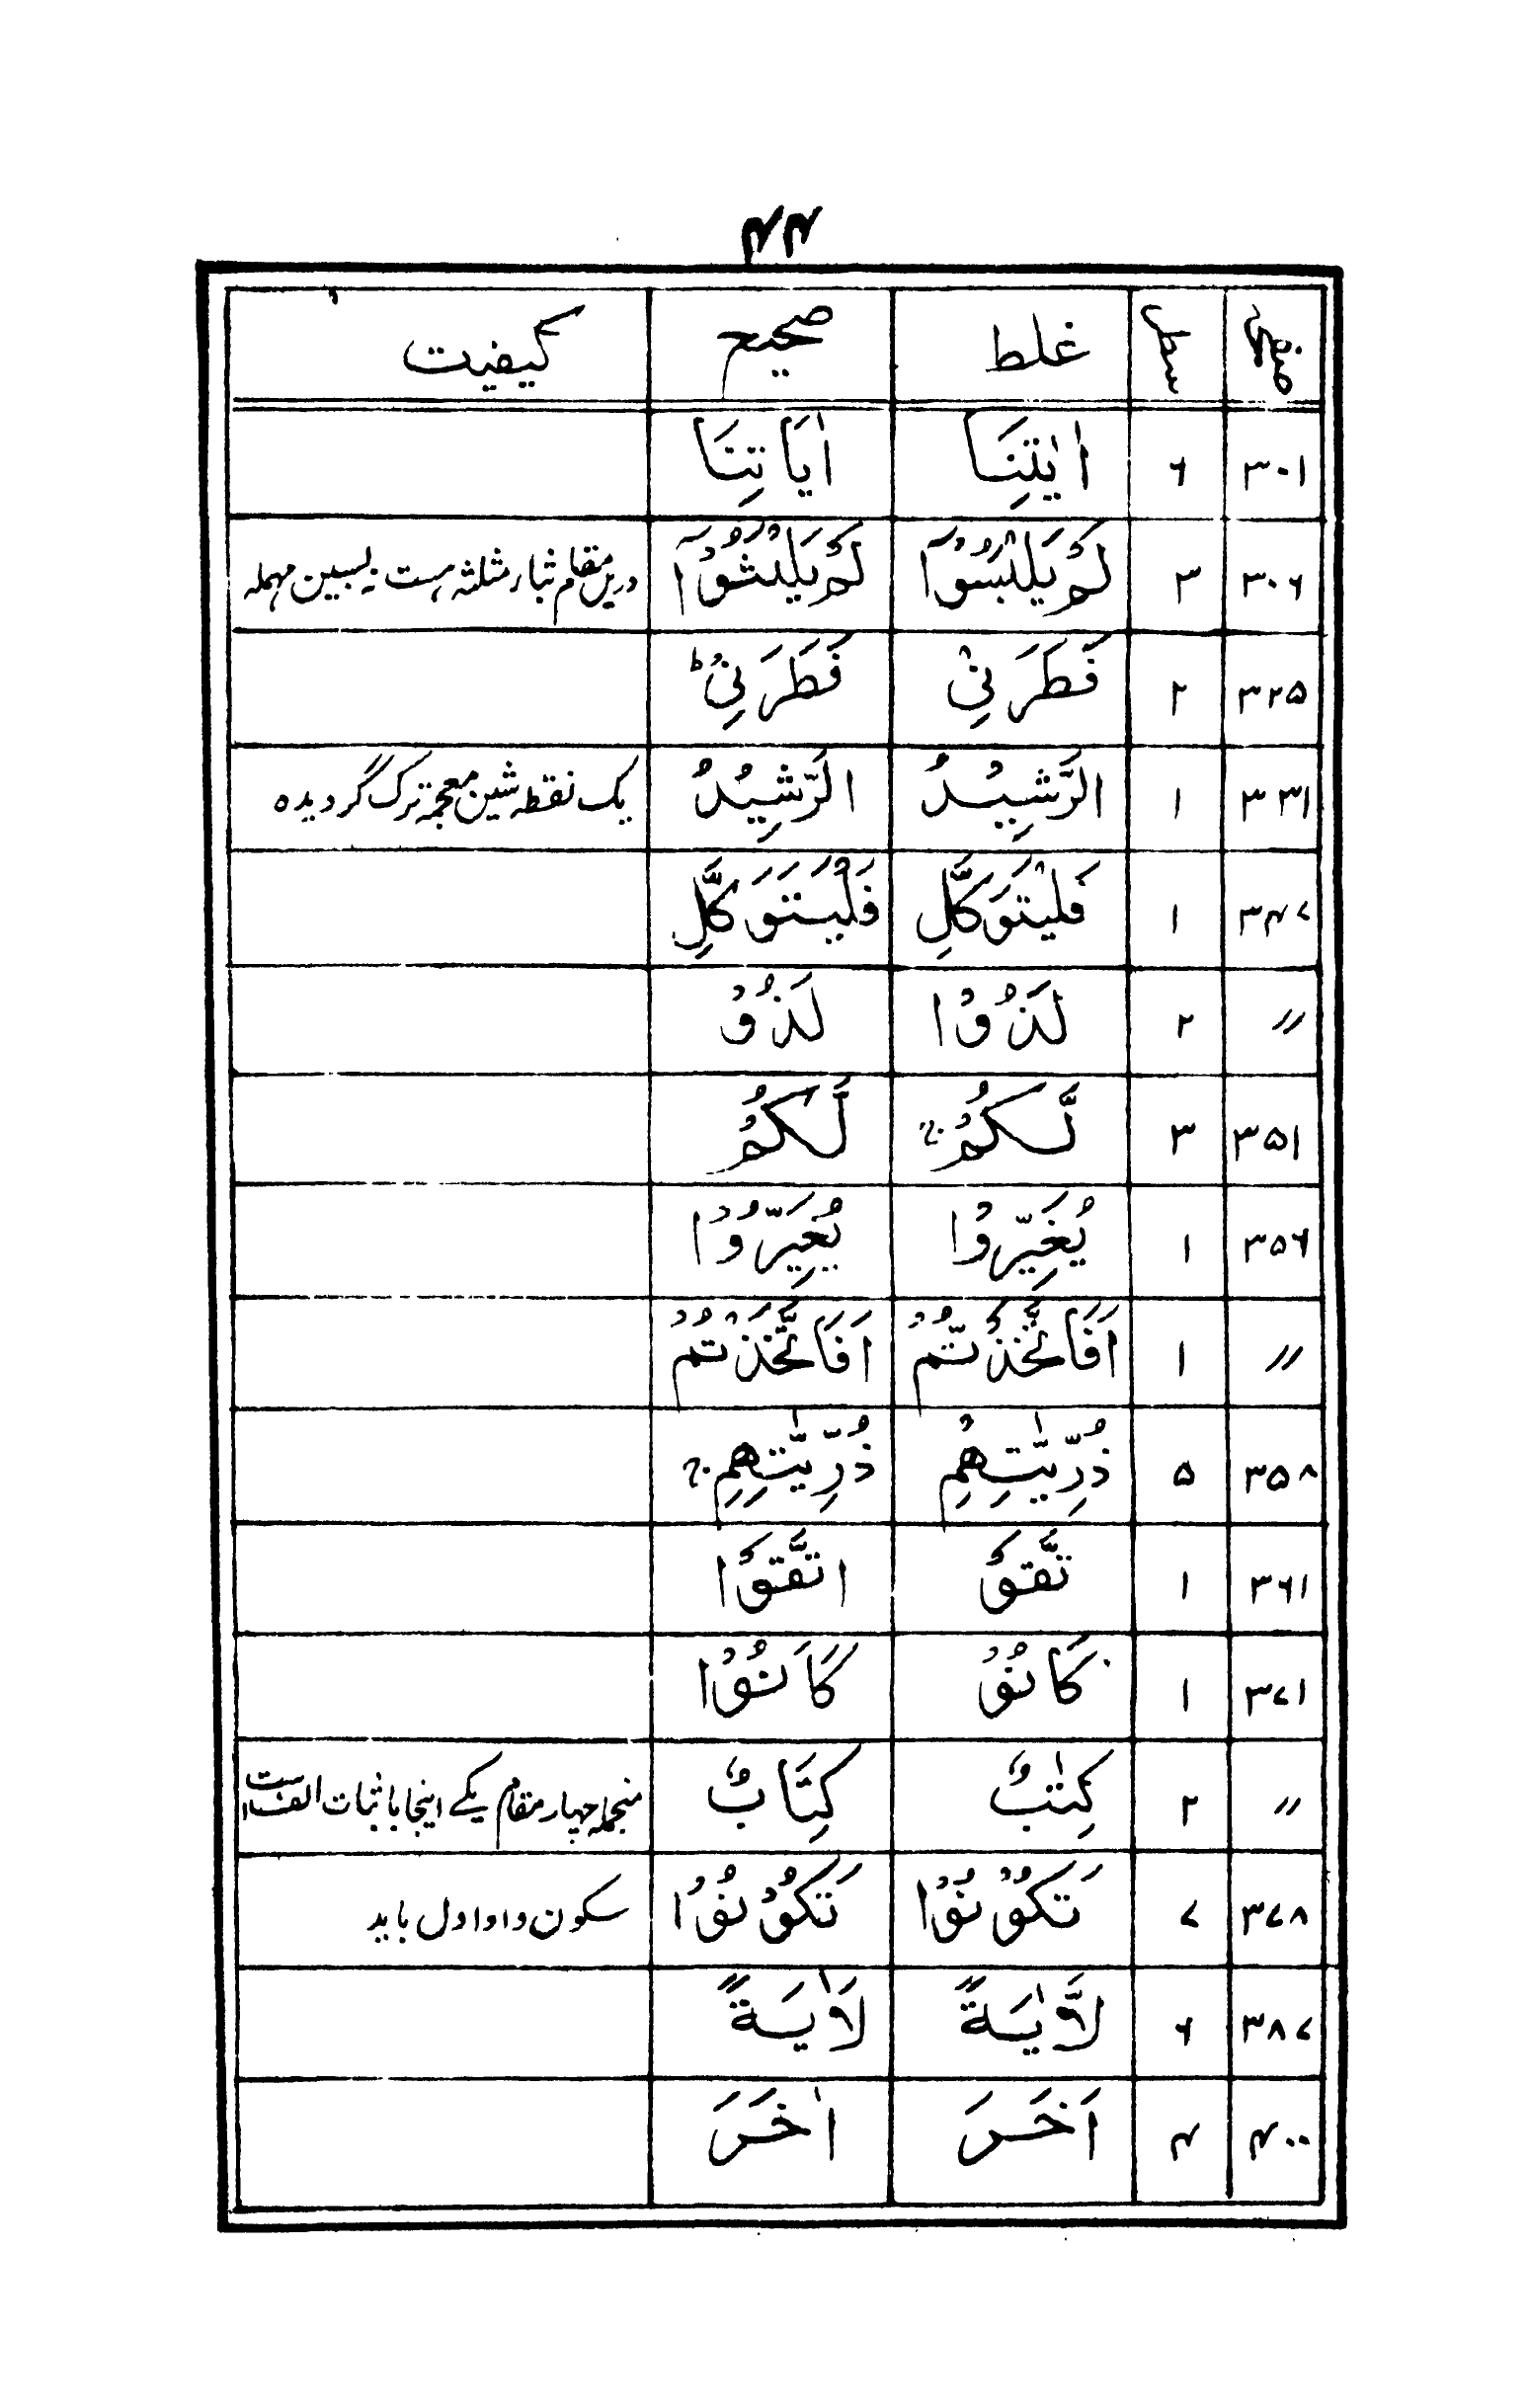 ۴۴
صفحہ سطر غلط صحیح کیفیت
۳۰۱ ۶ اٰیٰتِنَا اٰیَاتِنَا
۳۰۶ ۳ لَمْ يَلْبَسُوْۤا لَمْ يَلْبَثُوْۤا دریں مقام ثاء مثلثہ ہست نہ بسین مہملہ
۳۲۵ ۲ فَطَرَنِيْ فَطَرَنِيْ ؕ
۳۳۱ ۱ الرَّشِيْدُ الرَّشِيْدُ یک نقطہ شین معجمہ ترک گردیدہ
۳۴۷ ۱ فَلْيَتَوَكَّلِ فَلْيَتَوَكَّلِ
〃 ۲ لَذُوْا لَذُوْ
۳۵۱ ۳ لَّكُمْ ۚ لَكُمْ
۳۵۶ ۱ يُغَيِّرُوْا يُغَيِّرُوْا
〃 ۱ اَفَاتَّخَذْتُّمْ اَفَاتَّخَذْتُمْ
۳۵۸ ۵ ذُرِّيّٰتِهِمْ ذُرِّيّٰتِهِمْ ۚ
۳۶۱ ۱ تَّقَوْ اتَّقَوْا
۳۷۱ ۱ كَانُوْ كَانُوْا
〃 ۲ كِتٰبٌ كِتَابٌ منجملہ چہار مقام یکے اینجا باثبات الف است
۳۷۸ ۷ تَكُوْنُوْا تَكُوْنُوْا سکون واو اول باید
۳۸۷ ۶ لَّاٰيَةً لَاٰيَةً
۴۰۰ ۴ اَخَرَ اٰخَرَ